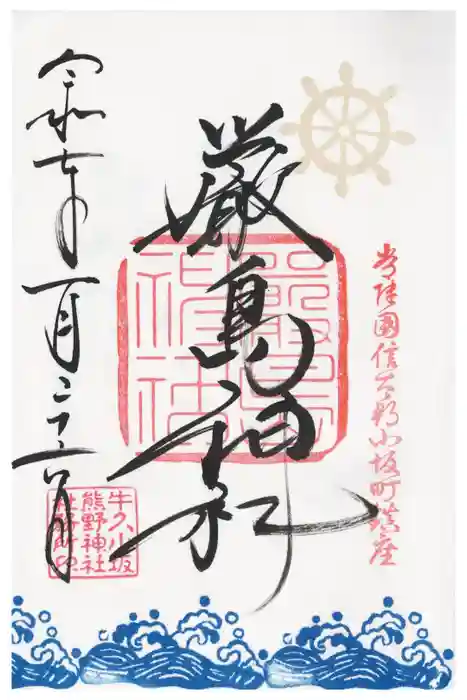 常陸國信太郡小坂町鎮座
厳島神社
嚴島
神社
令和七年一月二十二日
牛久小坂
熊野神社
社務所印